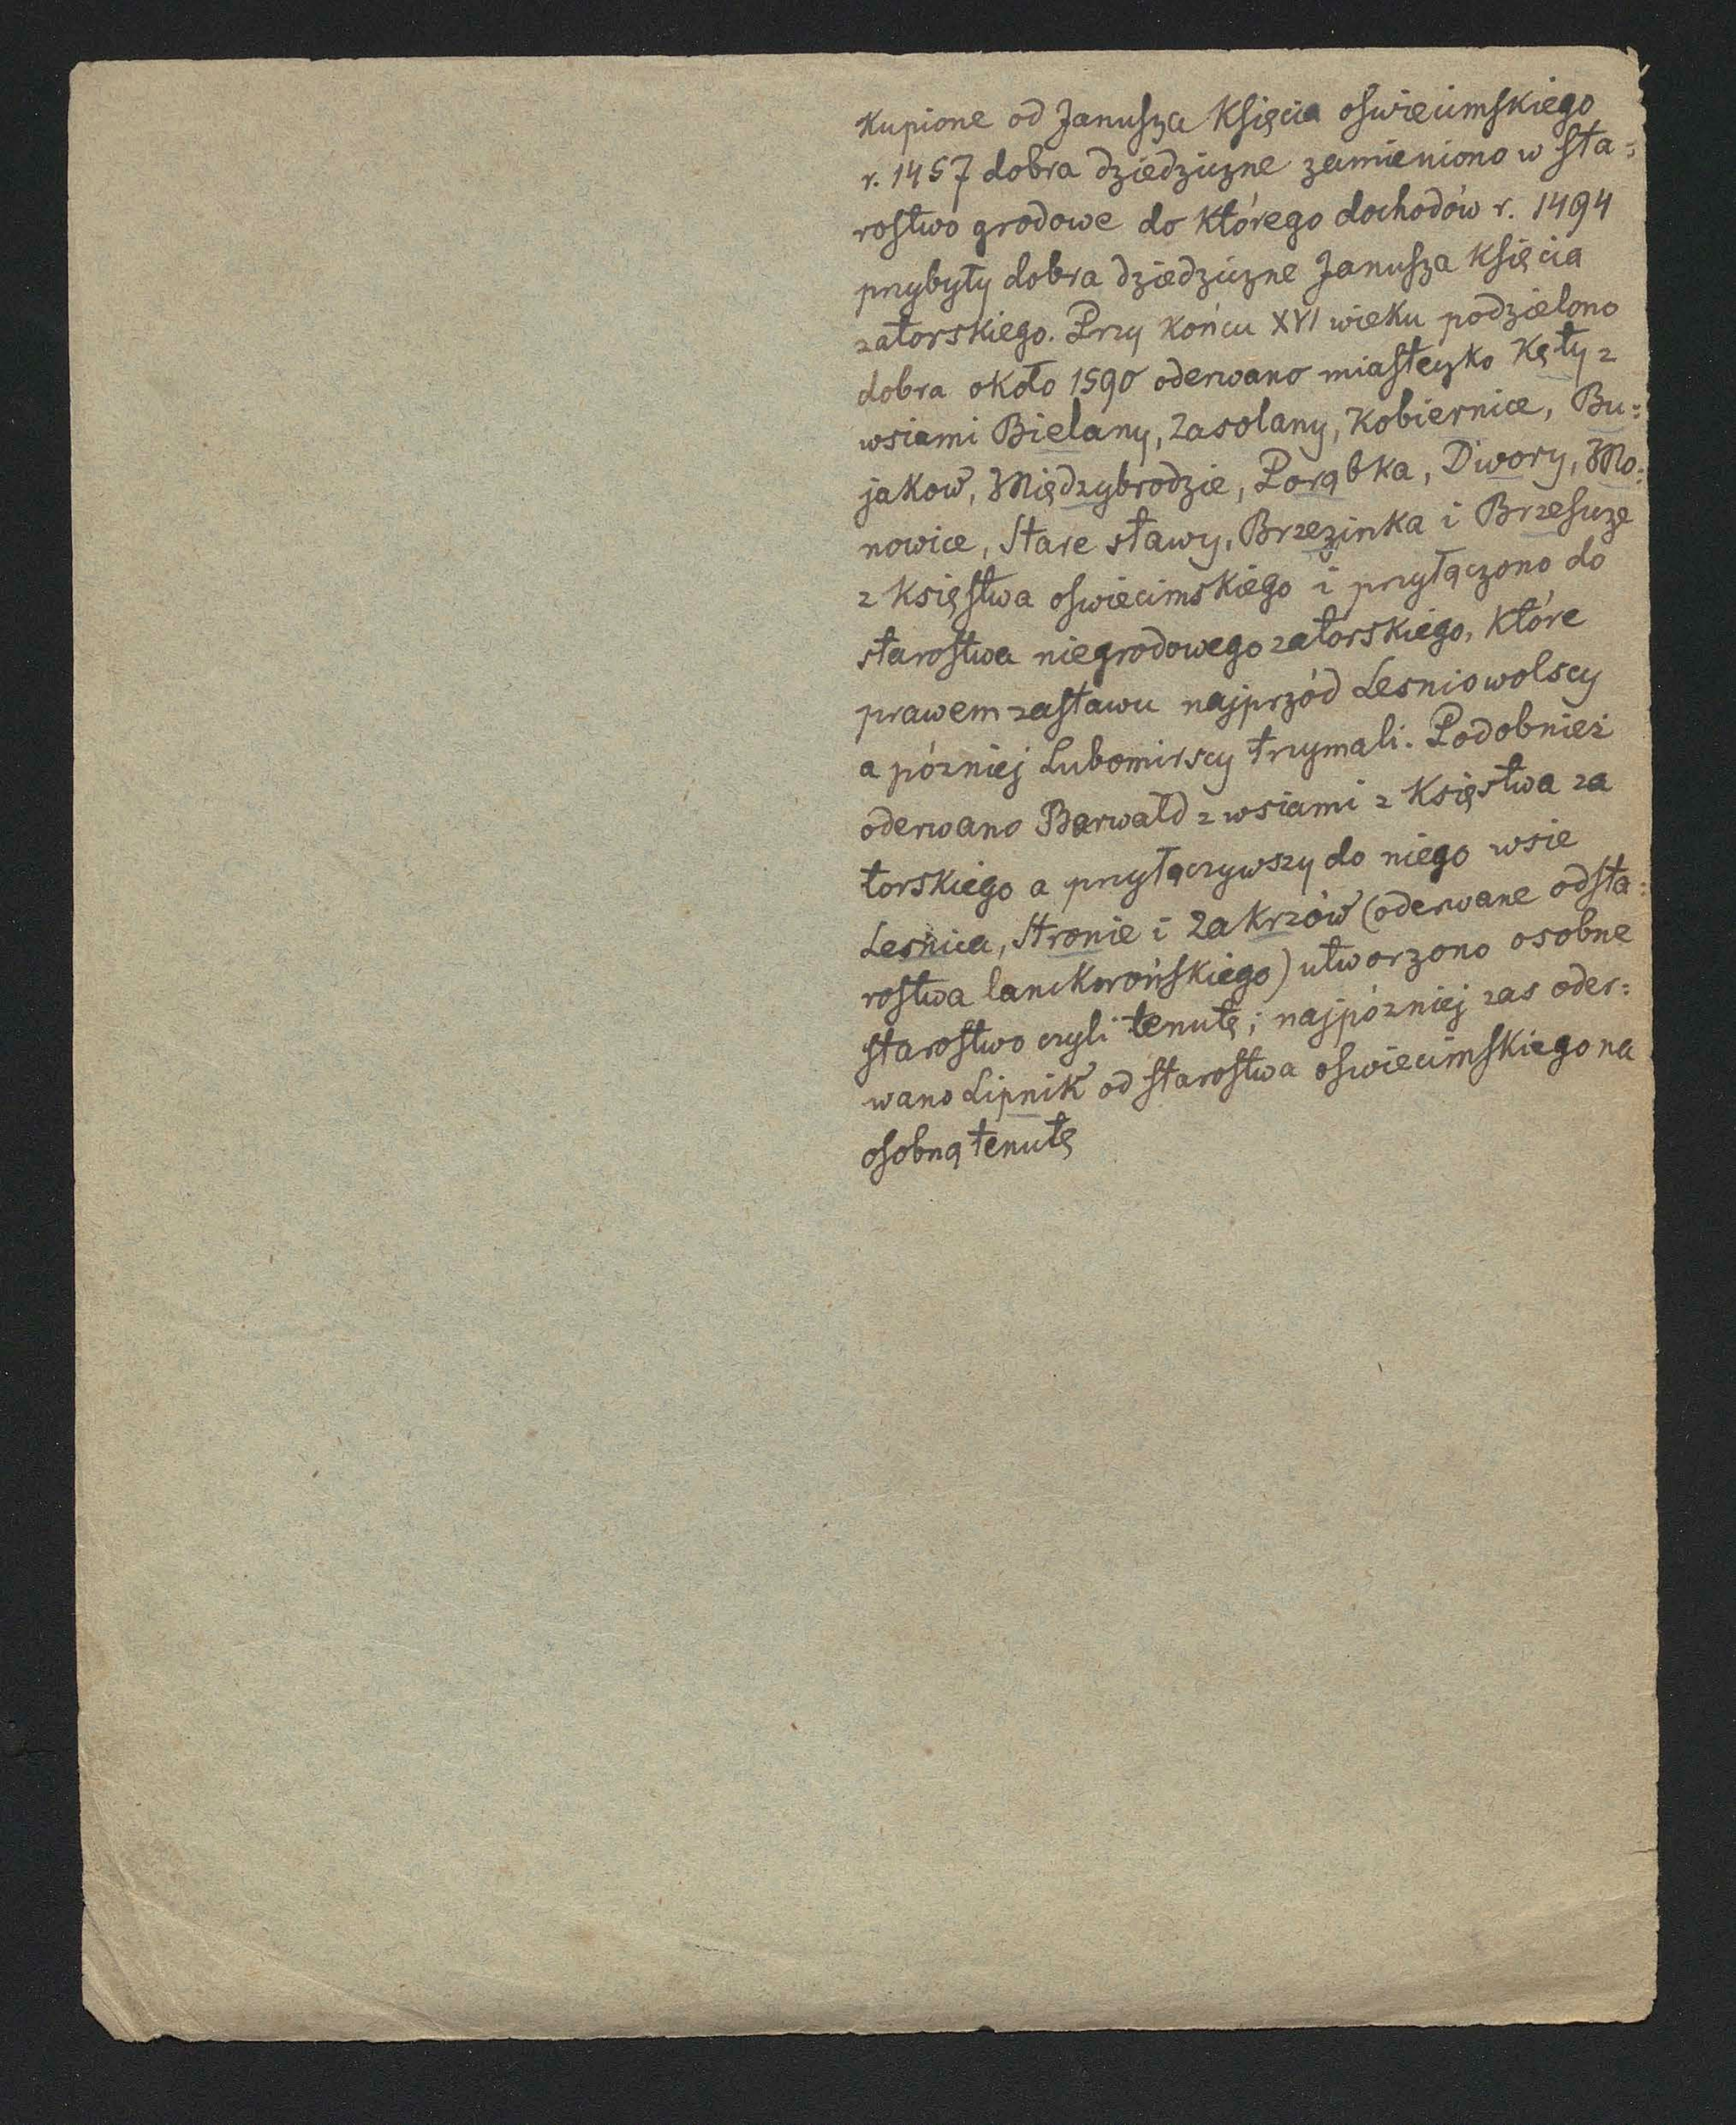 Kupione od Janusza Księcia oswiecimskiego
r. 1457 dobra dziedziczne zamieniono w sta=
rostwo grodowe do którego dochodów r. 1494
przybyły dobra dziedziczne Janusza Księcia
zatorskiego. Przy końcu XVI wieku podzielono
dobra około 1590 oderwano miasteczko Kęty z
wsiami Bielany, Zasolany, Kobiernice, Bu=
jakow, Międzybrodzie, Porąbka, Dwory, Mo=
nowice, Stare stawy, Brzezinka i Brzeszcze
z Księstwa oswiecimskiego i przyłączono do
starostwa niegrodowego zatorskiego, które
prawem zastawu najprzód Lesniowolscy
a pózniej Lubomirscy trzymali. Podobnież
oderwano Barwałd z wsiami z Księstwa za
torskiego a przyłączywszy do niego wsie
Lesnica, Stronie i Zakrzów (oderwane od sta=
rostwa lanckorońskiego) utworzono osobne
starostwo czyli tenutę; najpózniej zas oder=
wano Lipnik od starostwa oswiecimskiego na
osobną tenutę